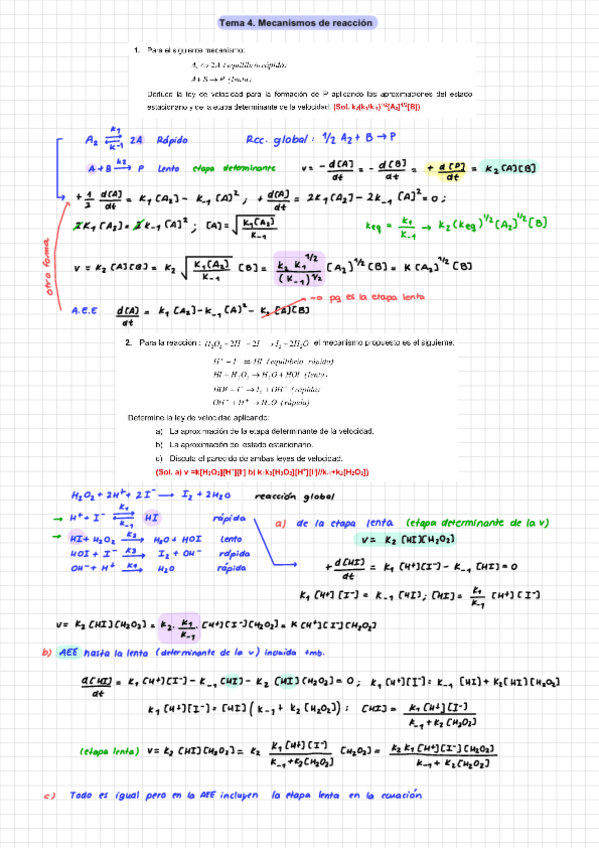 Tema 4. Mecanismos de reacción
1. Para el siguiente mecanismo:
A₂ ⇔ 2A (equilibrio rápido)
A+B → P (lenta)
Deduce la ley de velocidad para la formación de P aplicando las aproximaciones del estado
estacionario y de la etapa determinante de la velocidad. (Sol. k₂(k₁/k₋₁)^1/2[A₂]^1/2[B])
A₂ ⇌ 2A Rápido Rcc. global: 1/2 A₂ + B → P
k₁ k₋₁
A+B →(k₂) P Lento etapa determinante v = -d[A]/dt = -d[B]/dt = +d[P]/dt = k₂[A][B]
+1/2 d[A]/dt = k₁[A₂] - k₋₁[A]², +d[A]/dt = 2k₁[A₂] - 2k₋₁[A]² = 0;
2k₁[A₂] = 2k₋₁[A]²; [A] = √(k₁[A₂]/k₋₁) keq = k₁/k₋₁ → k₂(keq)^1/2[A₂]^1/2[B]
v = k₂[A][B] = k₂ √(k₁[A₂]/k₋₁) [B] = k₂ k₁^1/2/(k₋₁)^1/2 [A₂]^1/2[B] = k[A₂]^1/2[B]
otra forma
→ pq es la etapa lenta
A.E.E d[A]/dt = k₁[A₂] - k₋₁[A]² - k₂[A][B]
2. Para la reacción: H₂O₂ + 2H⁺ + 2I⁻ → I₂ + 2H₂O el mecanismo propuesto es el siguiente:
H⁺ + I⁻ ⇔ HI (equilibrio rápido)
HI + H₂O₂ → H₂O + HOI (lenta)
HOI + I⁻ → I₂ + OH⁻ (rápida)
OH⁻ + H⁺ → H₂O (rápida)
Determine la ley de velocidad aplicando:
a) La aproximación de la etapa determinante de la velocidad.
b) La aproximación de estado estacionario.
c) Discuta el parecido de ambas leyes de velocidad.
(Sol. a) v =k[H₂O₂][H⁺][I⁻] b) k₁k₂[H₂O₂][H⁺][I⁻]/k₋₁+k₂[H₂O₂])
H₂O₂ + 2H⁺ + 2I⁻ → I₂ + 2H₂O reacción global
→ H⁺ + I⁻ ⇌ HI rápida
k₁ k₋₁
→ HI + H₂O₂ →(k₂) H₂O + HOI lento
HOI + I⁻ →(k₃) I₂ + OH⁻ rápida
OH⁻ + H⁺ →(k₄) H₂O rápida
a) de la etapa lenta (etapa determinante de la v)
v = k₂[HI][H₂O₂]
+d[HI]/dt = k₁[H⁺][I⁻] - k₋₁[HI] = 0
k₁[H⁺][I⁻] = k₋₁[HI]; [HI] = k₁/k₋₁ [H⁺][I⁻]
v = k₂[HI][H₂O₂] = k₂ · k₁/k₋₁ · [H⁺][I⁻][H₂O₂] = k[H⁺][I⁻][H₂O₂]
b) AEE hasta la lenta (determinante de la v) incluida tmb.
d[HI]/dt = k₁[H⁺][I⁻] - k₋₁[HI] - k₂[HI][H₂O₂] = 0; k₁[H⁺][I⁻] = k₋₁[HI] + k₂[HI][H₂O₂]
k₁[H⁺][I⁻] = [HI](k₋₁ + k₂[H₂O₂]): [HI] = k₁[H⁺][I⁻]/(k₋₁ + k₂[H₂O₂])
(etapa lenta) v = k₂[HI][H₂O₂] = k₂ k₁[H⁺][I⁻]/(k₋₁ + k₂[H₂O₂]) [H₂O₂] = k₂k₁[H⁺][I⁻][H₂O₂]/(k₋₁ + k₂[H₂O₂])
c) Todo es igual pero en la AEE incluyen la etapa lenta en la ecuación